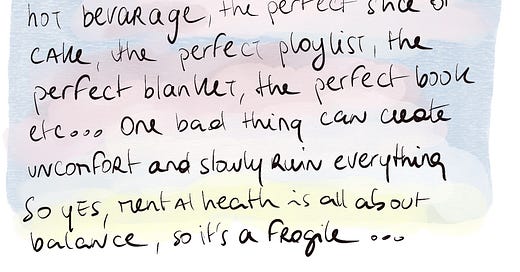 hot bevarage, the perfect slice of
cake, the perfect playlist, the
perfect blanket, the perfect book
etc... One bad thing can create
unconfort and slowly ruin everything
So yes, mental heath is all about
balance, so it's a fragile ...